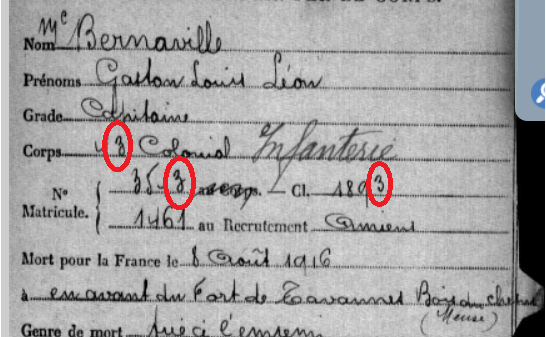 Mᶜ Bernaville
Nom
Prénoms Gaston Louis Léon
Grade Capitaine
Corps 43 Colonial Infanterie
Nº 3543 au Corps. Cl. 1893
Matricule. 1461 au Recrutement Amiens
Mort pour la France le 8 Août 1916
à en avant du Fort de Tavannes Bois du
(Meuse)
Genre de mort tué à l'ennemi